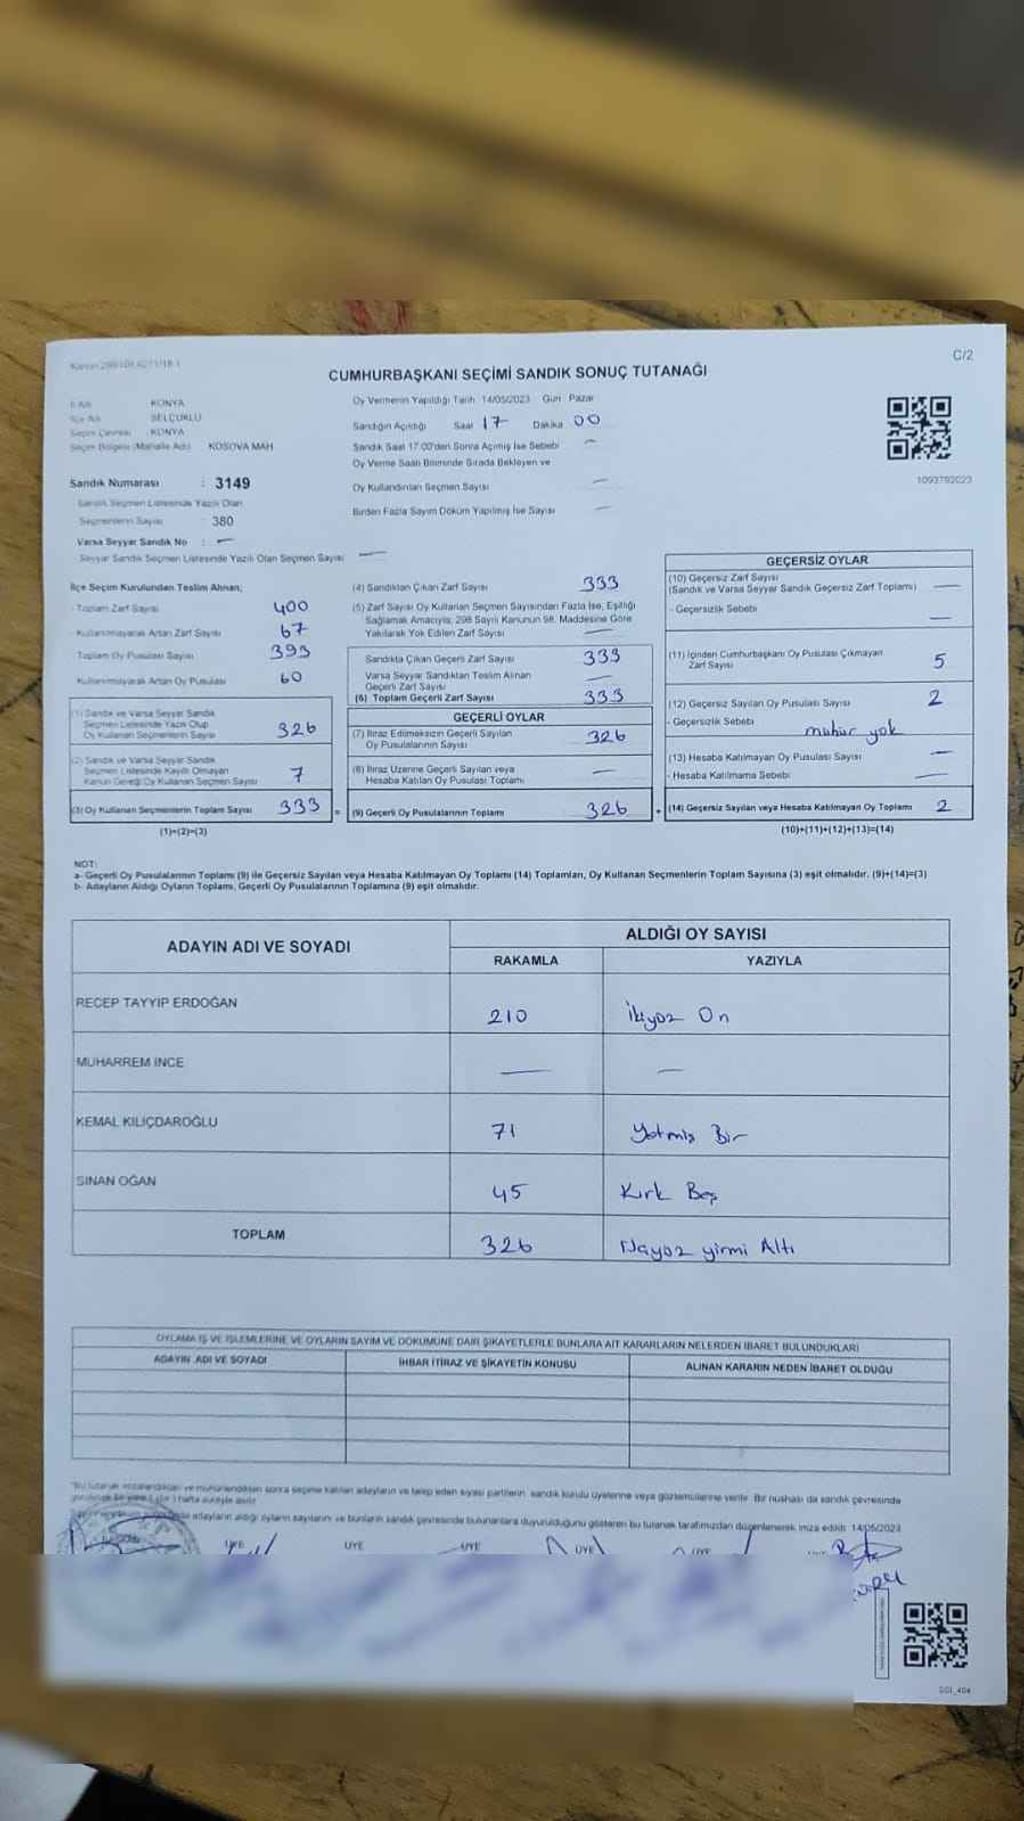 C/2
CUMHURBAŞKANI SEÇİMİ SANDIK SONUÇ TUTANAĞI
İl Adı KONYA
İlçe Adı SELÇUKLU
Seçim Çevresi KONYA
Seçim Bölgesi (Mahalle Adı) KOSOVA MAH
Sandık Numarası : 3149
Sandık Seçmen Listesinde Yazılı Olan
Seçmenlerin Sayısı : 380
Varsa Seyyar Sandık No : —
Seyyar Sandık Seçmen Listesinde Yazılı Olan Seçmen Sayısı —
Oy Vermenin Yapıldığı Tarih 14/05/2023 Gün Pazar
Sandığın Açıldığı Saat 17 Dakika 00
Sandık Saat 17.00'den Sonra Açılmış İse Sebebi —
Oy Verme Saati Bitiminde Sırada Bekleyen ve
Oy Kullandırılan Seçmen Sayısı —
Birden Fazla Sayım Döküm Yapılmış İse Sayısı —
1093792023
İlçe Seçim Kurulundan Teslim Alınan;
- Toplam Zarf Sayısı 400
- Kullanılmayarak Artan Zarf Sayısı 67
Toplam Oy Pusulası Sayısı 393
Kullanılmayarak Artan Oy Pusulası 60
(1) Sandık ve Varsa Seyyar Sandık
Seçmen Listesinde Yazılı Olup
Oy Kullanan Seçmenlerin Sayısı 326
(2) Sandık ve Varsa Seyyar Sandık
Seçmen Listesinde Kayıtlı Olmayan
Kanun Gereği Oy Kullanan Seçmen Sayısı 7
(3) Oy Kullanan Seçmenlerin Toplam Sayısı 333 =
(1)+(2)=(3)
(4) Sandıktan Çıkan Zarf Sayısı 333
(5) Zarf Sayısı Oy Kullanan Seçmen Sayısından Fazla İse, Eşitliği
Sağlamak Amacıyla, 298 Sayılı Kanunun 98. Maddesine Göre
Yakılarak Yok Edilen Zarf Sayısı —
Sandıkta Çıkan Geçerli Zarf Sayısı 333
Varsa Seyyar Sandıktan Teslim Alınan
Geçerli Zarf Sayısı —
(6) Toplam Geçerli Zarf Sayısı 333
GEÇERLİ OYLAR
(7) İtiraz Edilmeksizin Geçerli Sayılan
Oy Pusulalarının Sayısı 326
(8) İtiraz Üzerine Geçerli Sayılan veya
Hesaba Katılan Oy Pusulası Toplamı —
(9) Geçerli Oy Pusulalarının Toplamı 326 +
GEÇERSİZ OYLAR
(10) Geçersiz Zarf Sayısı
(Sandık ve Varsa Seyyar Sandık Geçersiz Zarf Toplamı) —
- Geçersizlik Sebebi —
(11) İçinden Cumhurbaşkanı Oy Pusulası Çıkmayan
Zarf Sayısı 5
(12) Geçersiz Sayılan Oy Pusulası Sayısı 2
- Geçersizlik Sebebi mühür yok
(13) Hesaba Katılmayan Oy Pusulası Sayısı —
- Hesaba Katılmama Sebebi —
(14) Geçersiz Sayılan veya Hesaba Katılmayan Oy Toplamı 2
(10)+(11)+(12)+(13)=(14)
NOT:
a- Geçerli Oy Pusulalarının Toplamı (9) ile Geçersiz Sayılan veya Hesaba Katılmayan Oy Toplamı (14) Toplamları, Oy Kullanan Seçmenlerin Toplam Sayısına (3) eşit olmalıdır. (9)+(14)=(3)
b- Adayların Aldığı Oyların Toplamı, Geçerli Oy Pusulalarının Toplamına (9) eşit olmalıdır.
ADAYIN ADI VE SOYADI
ALDIĞI OY SAYISI
RAKAMLA YAZIYLA
RECEP TAYYIP ERDOĞAN 210 İkiyüz On
MUHARREM İNCE — —
KEMAL KILIÇDAROĞLU 71 Yetmiş Bir
SİNAN OĞAN 45 Kırk Beş
TOPLAM 326 Üçyüz yirmi Altı
OYLAMA İŞ VE İŞLEMLERİNE VE OYLARIN SAYIM VE DÖKÜMÜNE DAİR ŞİKAYETLERLE BUNLARA AİT KARARLARIN NELERDEN İBARET BULUNDUKLARI
ADAYIN ADI VE SOYADI İHBAR İTİRAZ VE ŞİKAYETİN KONUSU ALINAN KARARIN NEDEN İBARET OLDUĞU
Bu tutanak imzalandıktan ve mühürlendikten sonra seçime katılan adayların ve talep eden siyasi partilerin sandık kurulu üyelerine veya gözlemcilerine verilir. Bir nüshası da sandık çevresinde
hafta süreyle asılır
adayların aldığı oyların sayılarını ve bunların sandık çevresinde bulunanlara duyurulduğunu gösteren bu tutanak tarafımızdan düzenlenerek imza edildi. 14/05/2023
ÜYE ÜYE ÜYE ÜYE ÜYE